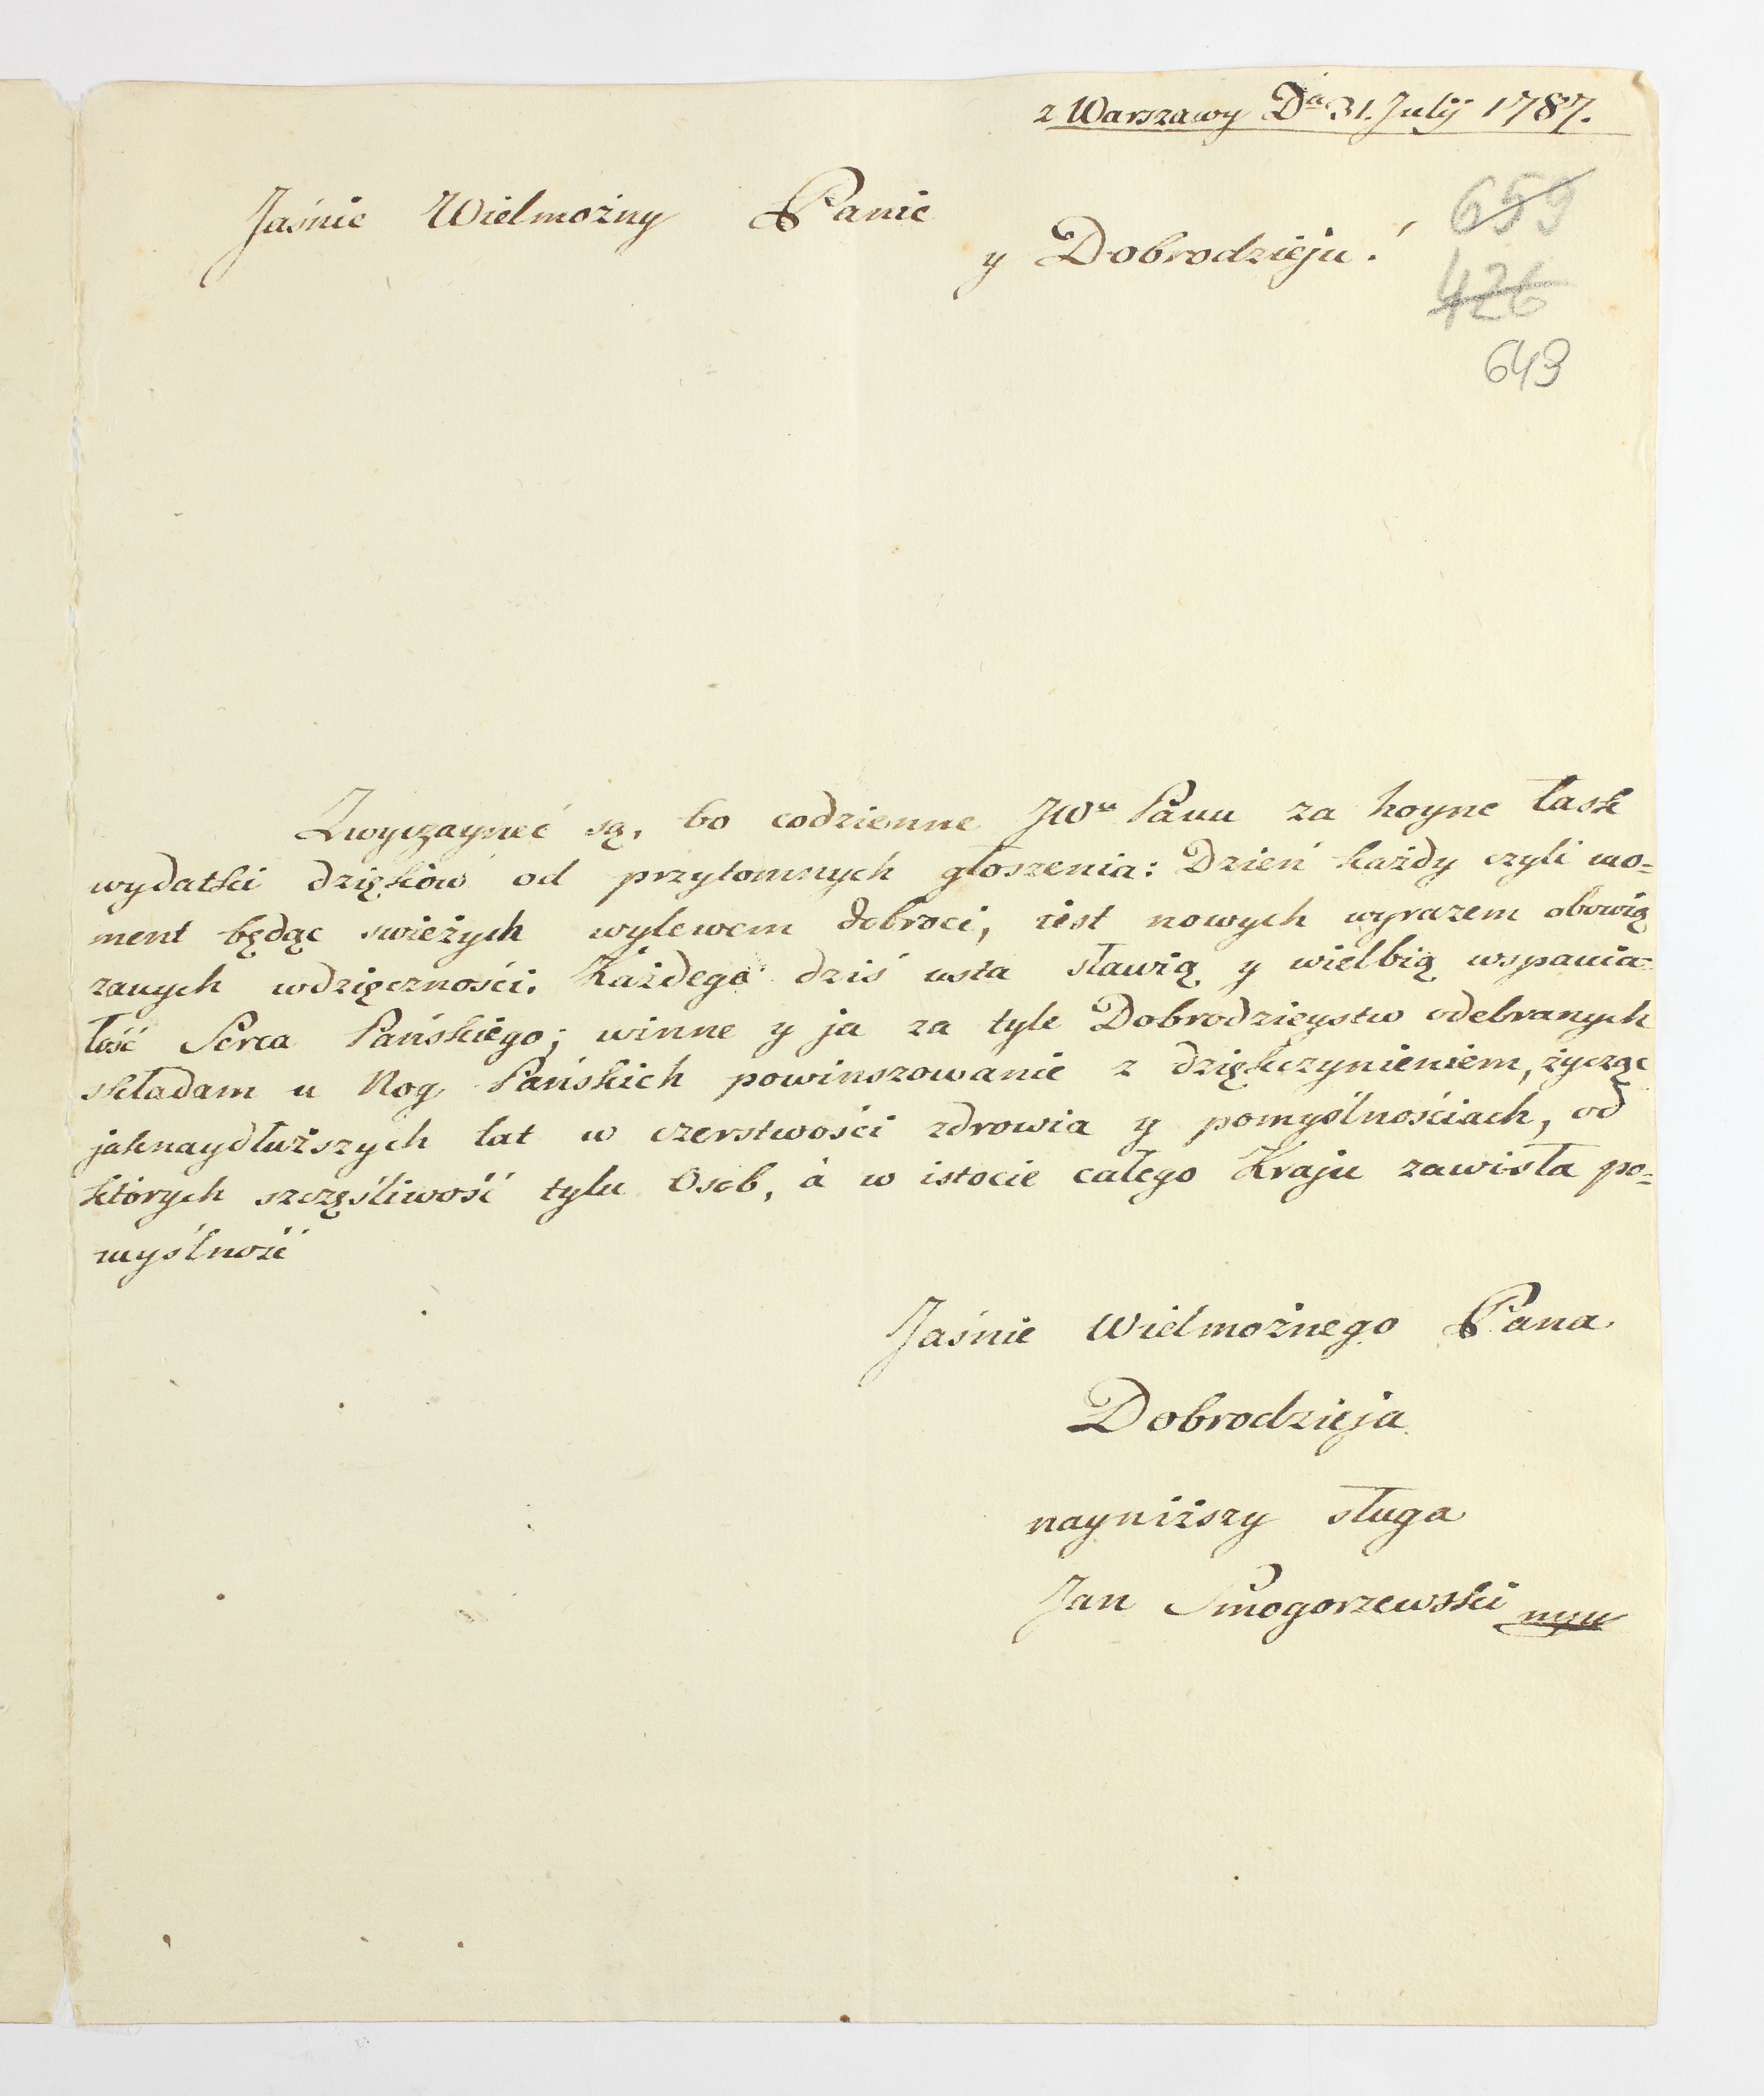 z Warszawy Dã 31. Julij 1787.
Jaśnie Wielmożny Panie
y Dobrodzieju!
659
426
643
Zwyczayneć są, bo codzienne JWu Panu za hoyne łask
wydatki dzięków od przytomnych głoszenia: Dzień każdy czyli mo=
ment będąc swieżych wylewem dobroci, iest nowych wyrazem obowią
zanych wdzięczności. Każdego dziś usta sławią y wielbią wspania=
łość Serca Pańskiego; winne y ja za tyle Dobrodzieystw odebranych
składam u Nog Pańskich powinszowanie z dziękczynieniem, życząc
jaknaydłuższych lat w czerstwości zdrowia y pomyślnościach, od
których szczęśliwość tylu Osob, à w istocie całego Kraju zawisła po=
myślność
Jaśnie Wielmożnego Pana
Dobrodzieja
nayniższy sługa
Jan Smogorzewski mpu